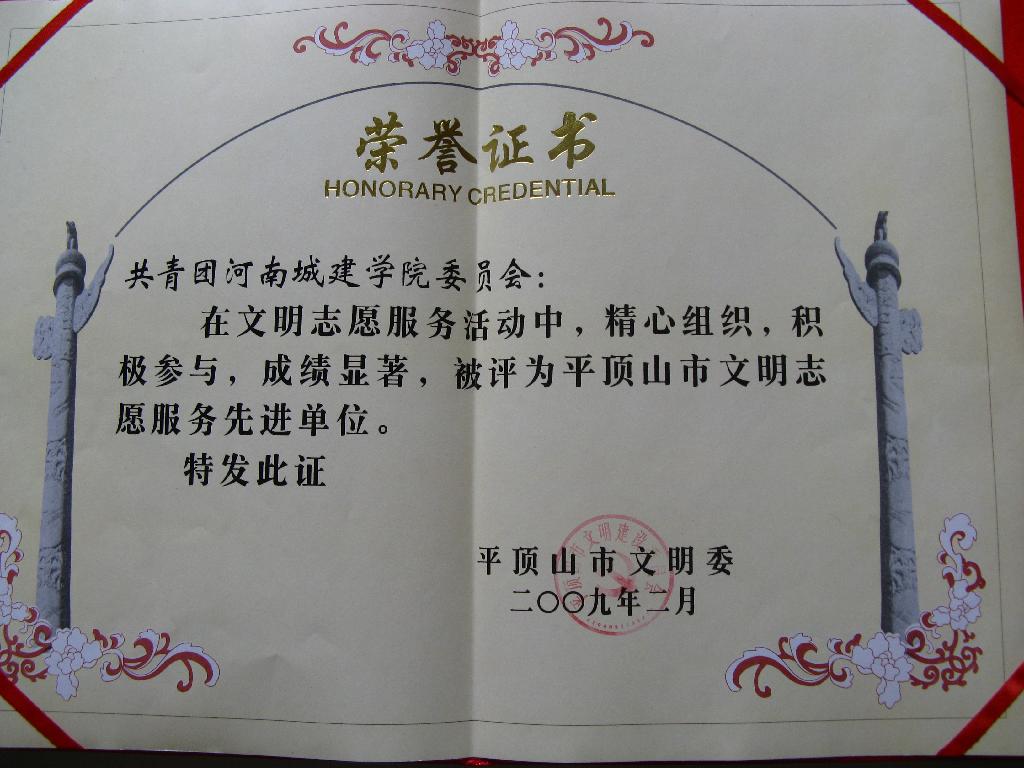 荣誉证书
HONORARY CREDENTIAL
共青团河南城建学院委员会:
在文明志愿服务活动中,精心组织,积
极参与,成绩显著,被评为平顶山市文明志
愿服务先进单位。
特发此证
平顶山市文明委
二〇〇九年二月